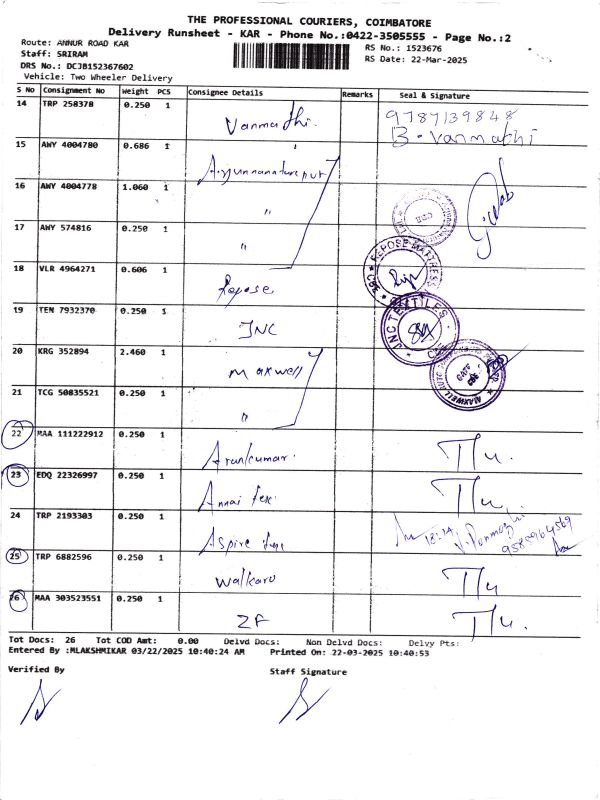 THE PROFESSIONAL COURIERS, COIMBATORE
Delivery Runsheet - KAR - Phone No.:0422-3505555 - Page No.:2
Route: ANNUR ROAD KAR
Staff: SRIRAM
DRS No.: DCJB152367602
Vehicle: Two Wheeler Delivery
RS No.: 1523676
RS Date: 22-Mar-2025
S No Consignment No Weight PCS Consignee Details Remarks Seal & Signature
14 TRP 258378 0.250 1 Vanmathi. 9787139848
B. Vanmathi
15 AWY 4004780 0.686 1
16 AWY 4004778 1.060 1 "
17 AWY 574816 0.250 1 "
18 VLR 4964271 0.606 1 Repose REPOSE MATTRESS CBE
19 TEN 7932370 0.250 1 JNC JNC TEXTILES CBE
20 KRG 352894 2.460 1 Maxwell
21 TCG 50835521 0.250 1 "
22 MAA 111222912 0.250 1 Arunkumar.
23 EDQ 22326997 0.250 1 Annai Tex.
24 TRP 2193303 0.250 1 Aspire 18-24 V. Ponmozhi
25 TRP 6882596 0.250 1 Walkaru
26 MAA 303523551 0.250 1 ZF
Tot Docs: 26 Tot COD Amt: 0.00 Delvd Docs: Non Delvd Docs: Delvy Pts:
Entered By :MLAKSHMIKAR 03/22/2025 10:40:24 AM Printed On: 22-03-2025 10:40:53
Verified By Staff Signature